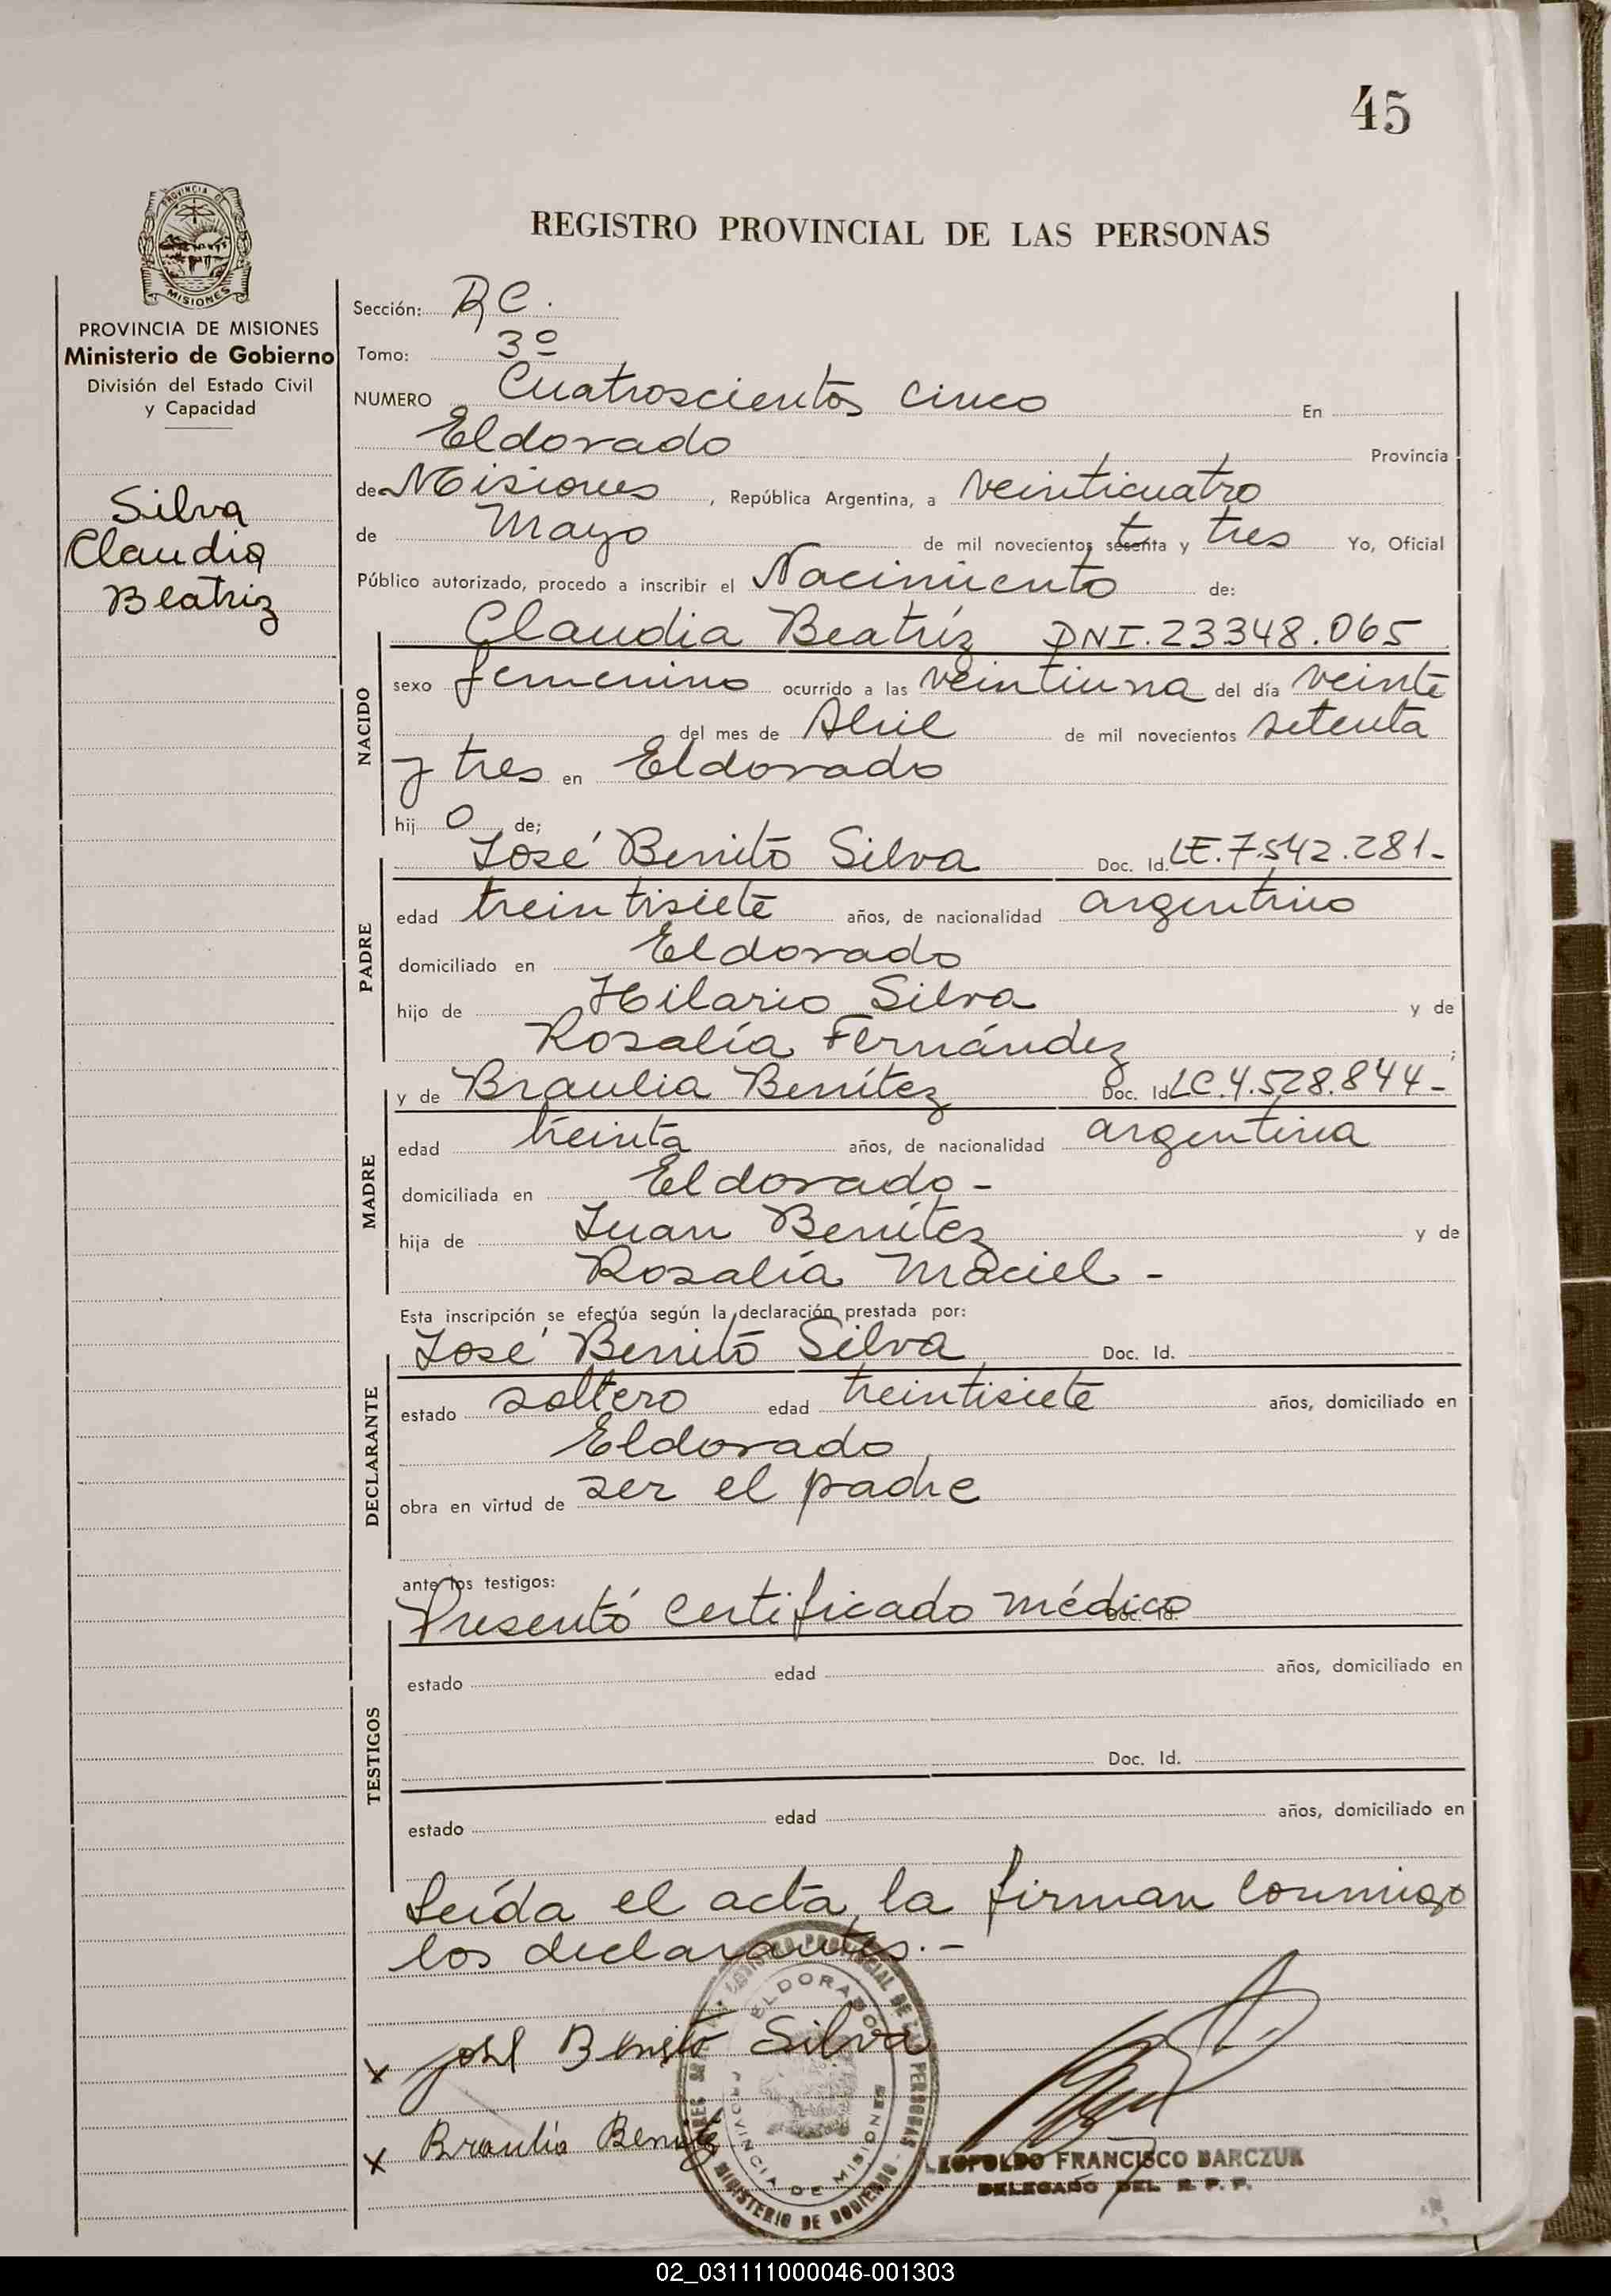 45
PROVINCIA DE
MISIONES
REGISTRO PROVINCIAL DE LAS PERSONAS
PROVINCIA DE MISIONES
Ministerio de Gobierno
División del Estado Civil
y Capacidad
Silva
Claudia
Beatriz
Sección: RC.
Tomo: 3º
NUMERO Cuatroscientos cinco En
Eldorado Provincia
de Misiones, República Argentina, a veinticuatro
de Mayo de mil novecientos setenta y tres Yo, Oficial
Público autorizado, procedo a inscribir el Nacimiento de:
NACIDO
Claudia Beatríz DNI.23348.065
sexo femenino ocurrido a las veintiuna del día veinte
del mes de Abril de mil novecientos setenta
y tres en Eldorado
hij o de;
PADRE
José Benito Silva Doc. Id. LE.7.542.281-
edad treintisiete años, de nacionalidad argentino
domiciliado en Eldorado
hijo de Hilario Silva y de
Rosalía Fernández;
MADRE
y de Braulia Benítez Doc. Id LC.4.528.844-
edad treinta años, de nacionalidad argentina
domiciliada en Eldorado-
hija de Juan Benítez y de
Rosalía Maciel-
Esta inscripción se efectúa según la declaración prestada por:
DECLARANTE
José Benito Silva Doc. Id.
estado soltero edad treintisiete años, domiciliado en
Eldorado
obra en virtud de ser el padre
ante los testigos:
TESTIGOS
Presentó certificado médico Doc. Id.
estado edad años, domiciliado en
Doc. Id.
estado edad años, domiciliado en
Leída el acta, la firman conmigo
los declarantes.-
x José Benito Silva
x Braulia Benitez
REGISTRO PROVINCIAL DE LAS PERSONAS
ELDORADO
PROVINCIA DE MISIONES
MINISTERIO DE GOBIERNO
LEOPOLDO FRANCISCO BARCZUK
DELEGADO DEL R. P. P.
02_031111000046-001303